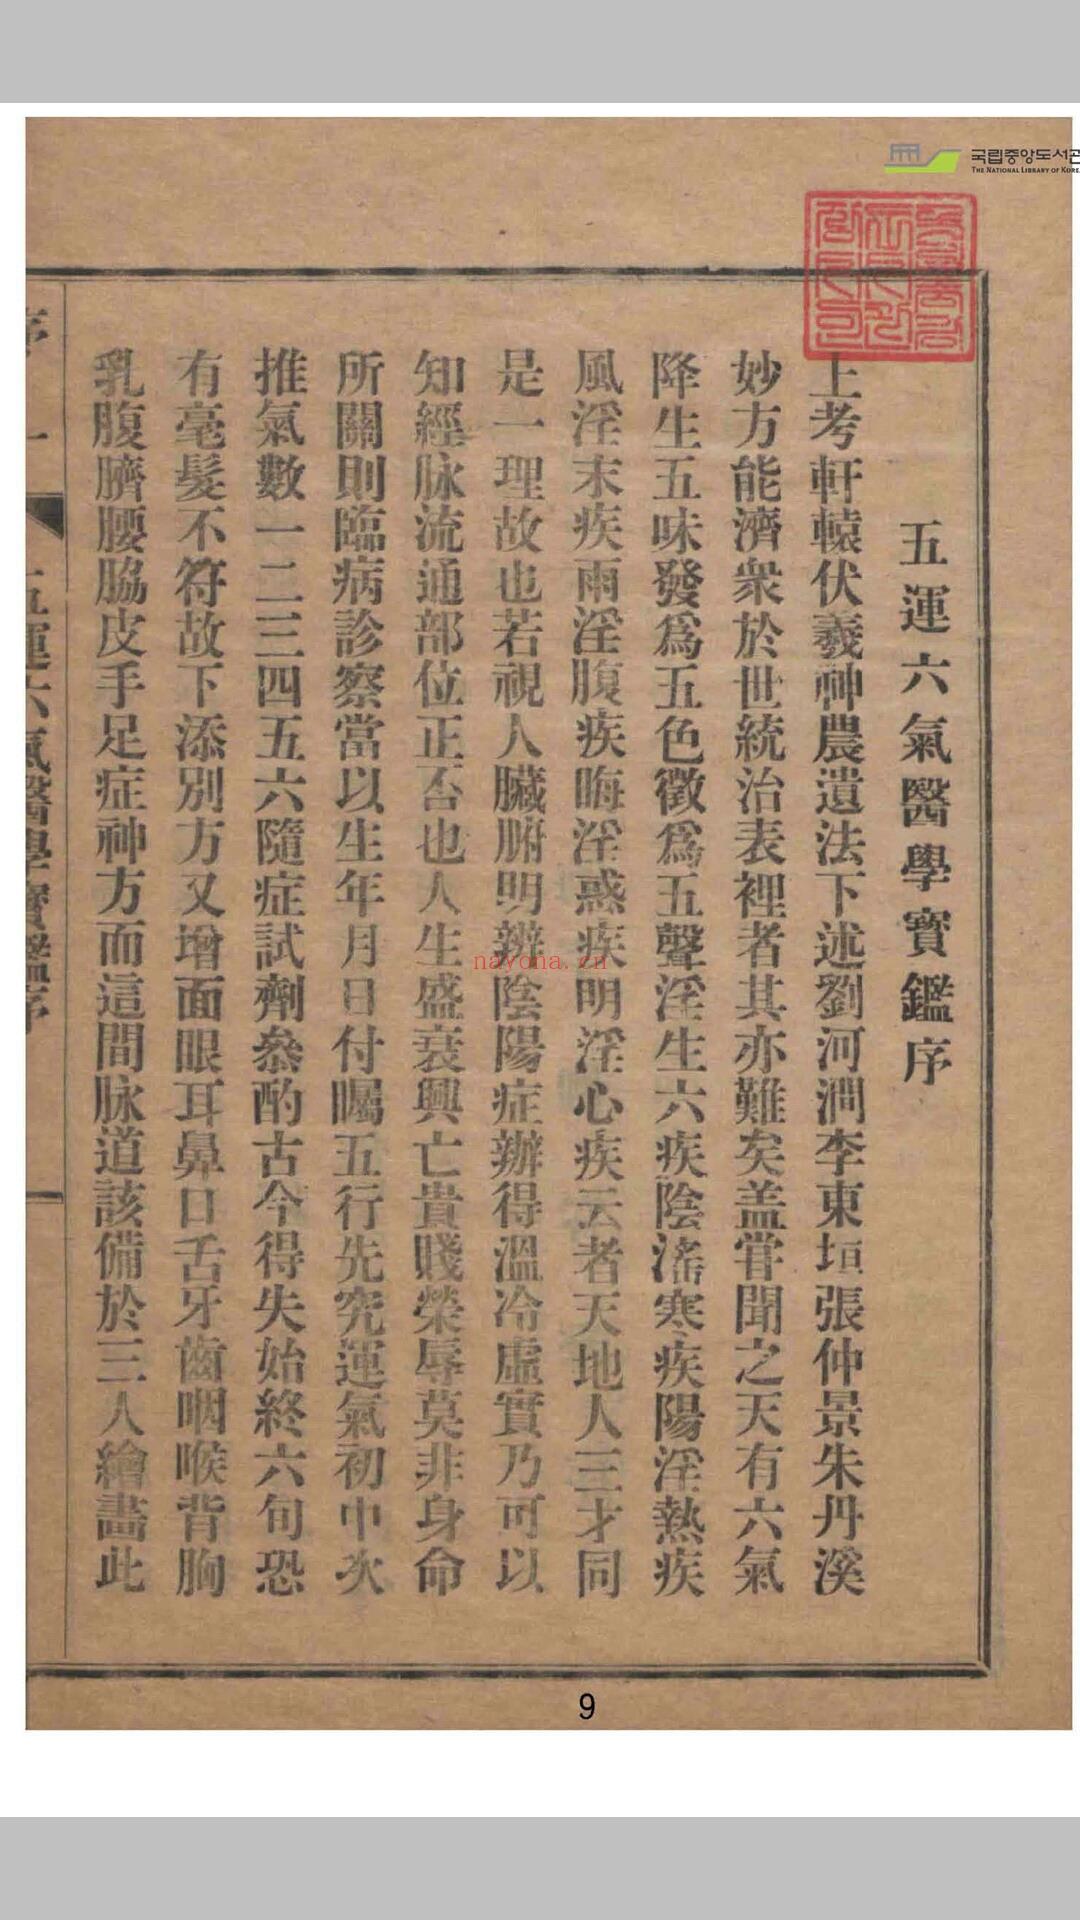 국립중앙도서관
THE NATIONAL LIBRARY OF KOREA
五運六氣醫學寶鑑序
上考軒轅伏羲神農遺法下述劉河澗李東垣張仲景朱丹溪
妙方能濟衆於世統治表裡者其亦難矣盖甞聞之天有六氣
降生五味發爲五色徵爲五聲淫生六疾陰滛寒疾陽淫熱疾
風淫末疾雨淫腹疾晦淫惑疾明淫心疾云者天地人三才同
是一理故也若視人臟腑明辨陰陽症辦得溫冷虛實乃可以
知經脉流通部位正否也人生盛衰興亡貴賤榮辱莫非身命
所關則臨病診察當以生年月日付囑五行先究運氣初中次
推氣數一二三四五六隨症試劑叅酌古今得失始終六旬恐
有毫髮不符故下添別方又增面眼耳鼻口舌牙齒咽喉背胸
乳腹臍腰脇皮手足症神方而這間脉道該備於三人繪畵此
序 一 五運六氣醫學寶鑑序
nayona.cn
9